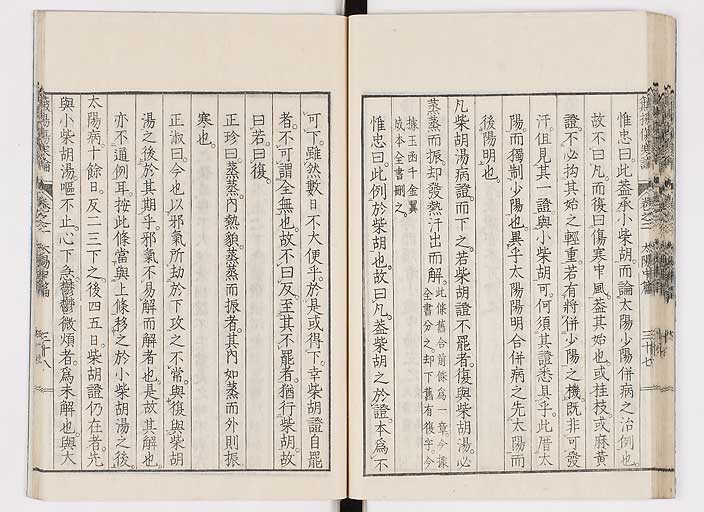 惟忠曰此蓋承小柴胡而論太陽少陽併病之治例也
故不曰凡而復曰傷寒中風蓋其始也或桂枝或麻黃
證不必拘其始之輕重若有將併少陽之機既非可發
汗但見其一證與小柴胡可何須其證悉具乎此厝太
陽而獨制少陽也異乎太陽陽明合併病之先太陽而
後陽明也
凡柴胡湯病證而下之若柴胡證不罷者復與柴胡湯必
蒸蒸而振却發熱汗出而解此條舊合前條為一章今據
全書分之却下舊有復字今
據玉函千金翼
成本全書刪之
惟忠曰此例於柴胡也故曰凡蓋柴胡之於證本為不
可下雖然數日不大便乎於是或得下幸柴胡證自罷
者不可謂全無也故不曰反至其不罷者猶行柴胡故
曰若曰復
正珍曰蒸蒸內熱貌蒸蒸而振者其內如蒸而外則振
寒也
正淑曰今也以邪氣所劫於下攻之不當與復與柴胡
湯之後於其期乎邪氣不易解而解者也是故其解也
亦不通例耳按此條當與上條移之於小柴胡湯之後
太陽病十餘日反二三下之後四五日柴胡證仍在者先
與小柴胡湯嘔不止心下急鬱鬱微煩者為未解也與大